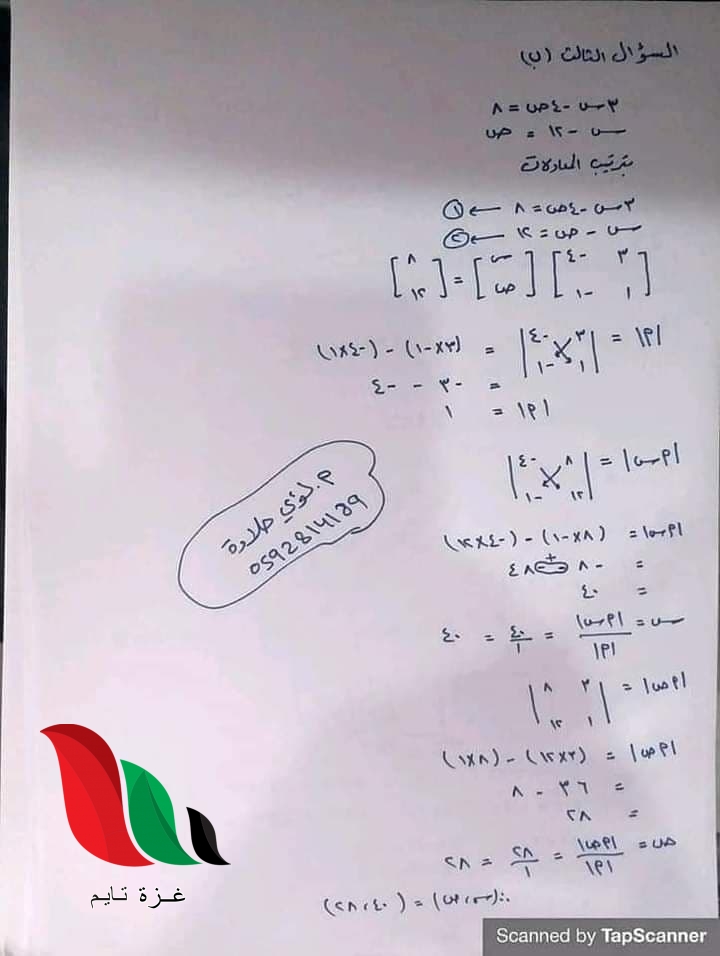 السؤال الثالث (ب)
٣س - ٤ص = ٨
س - ١٢ = ص
بترتيب المعادلات
٣س - ٤ص = ٨ ← ①
س - ص = ١٢ ← ②
[٣ -٤ ١ -١] [س ص] = [٨ ١٢]
|م| = |٣ -٤ ١ -١| = (٣×-١) - (-٤×١)
= -٣ - -٤
|م| = ١
|م س| = |٨ -٤ ١٢ -١|
|م س| = (٨×-١) - (-٤×١٢)
= -٨ + ٤٨
= ٤٠
س = |م س| / |م| = ٤٠/١ = ٤٠
|م ص| = |٣ ٨ ١ ١٢|
|م ص| = (٣×١٢) - (٨×١)
= ٣٦ - ٨
= ٢٨
ص = |م ص| / |م| = ٢٨/١ = ٢٨
∴ (س، ص) = (٤٠، ٢٨)
م. لؤي حلادة
0592814189
غزة تايم
Scanned by TapScanner